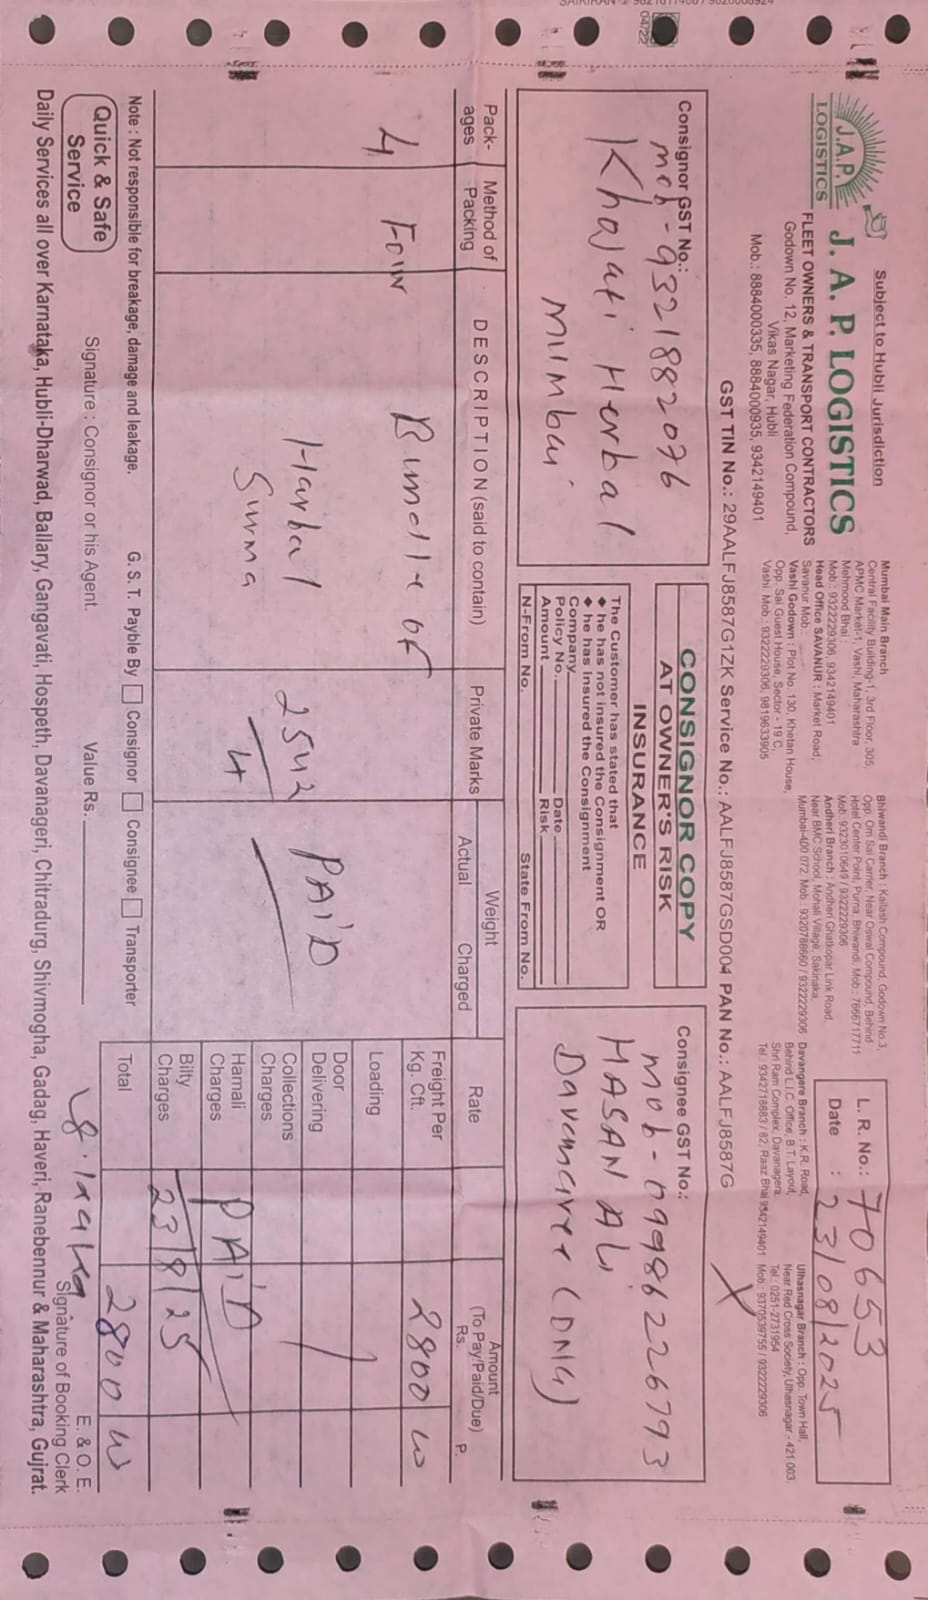 Subject to Hubli Jurisdiction
J.A.P.
LOGISTICS
J. A. P. LOGISTICS
FLEET OWNERS & TRANSPORT CONTRACTORS
Godown No. 12, Marketing Federation Compound,
Vikas Nagar, Hubli
Mob.: 8884000335, 8884000935, 9342149401
Mumbai Main Branch
Central Facility Building-1, 3rd Floor, 305,
APMC Market-1, Vashi, Maharashtra
Mehmood Bhai :
Mob.: 9322229306, 9342149401
Head Office SAVANUR : Market Road,
Savanur Mob.:
Vashi Godown : Plot No. 130, Khetan House,
Opp. Sai Guest House, Sector - 19 C,
Vashi. Mob.: 9322229306, 9819633905
Bhiwandi Branch : Kailash Compound, Godown No.3,
Opp. Om Sai Carrier, Near Oswal Compound, Behind
Hotel Center Point, Purna, Bhiwandi. Mob.: 7666717711
Mob: 9323010649 / 9322229306
Andheri Branch : Andheri Ghatkopar Link Road,
Near BMC School, Mohali Village, Sakinaka,
Mumbai-400 072. Mob.: 9320788660 / 9322229306
Davangere Branch : K.R. Road,
Behind L.I.C. Office, B.T. Layout,
Shri Ram Complex, Davanagera.
Tel.: 9342718883 / 82, Raaz Bhai 9342149401
Ulhasnagar Branch : Opp. Town Hall,
Near Red Cross Society, Ulhasnagar - 421 003.
Tel.: 0251-2731954
Mob.: 9370539755 / 9322229306
L. R. No.: 70653
Date : 23/08/2025
GST TIN No.: 29AALFJ8587G1ZK Service No.: AALFJ8587GSD004 PAN No.: AALFJ8587G
Consignor GST No.:
mob-9321882076
Khajati Herbal
Mumbai
CONSIGNOR COPY
AT OWNER'S RISK
INSURANCE
The Customer has stated that
◆ he has not insured the Consignment OR
◆ he has Insured the Consignment
Company
Policy No. Date
Amount Risk
N-From No. State From No.
Consignee GST No.:
Mob-09986226793
HASAN ALi
Davenaree (DNG)
Pack-ages
Method of Packing
DESCRIPTION (said to contain)
Private Marks
Weight
Actual Charged
Rate
Amount
(To Pay/Paid/Due)
Rs. P.
4 Four Bundle of
Harbal
Surma
2542
4
PAiD
Freight Per Kg. Cft. 2800 w
Loading
Door Delivering
Collections Charges
Hamali Charges PAiD
Bilty Charges 23/8/25
Total 2800 w
Note : Not responsible for breakage, damage and leakage. G. S. T. Payble By Consignor Consignee Transporter
E. & O. E.
Quick & Safe
Service
Signature : Consignor or his Agent. Value Rs. Signature of Booking Clerk
Daily Services all over Karnataka, Hubli-Dharwad, Ballary, Gangavati, Hospeth, Davanageri, Chitradurg, Shivmogha, Gadag, Haveri, Ranebennur & Maharashtra, Gujrat.